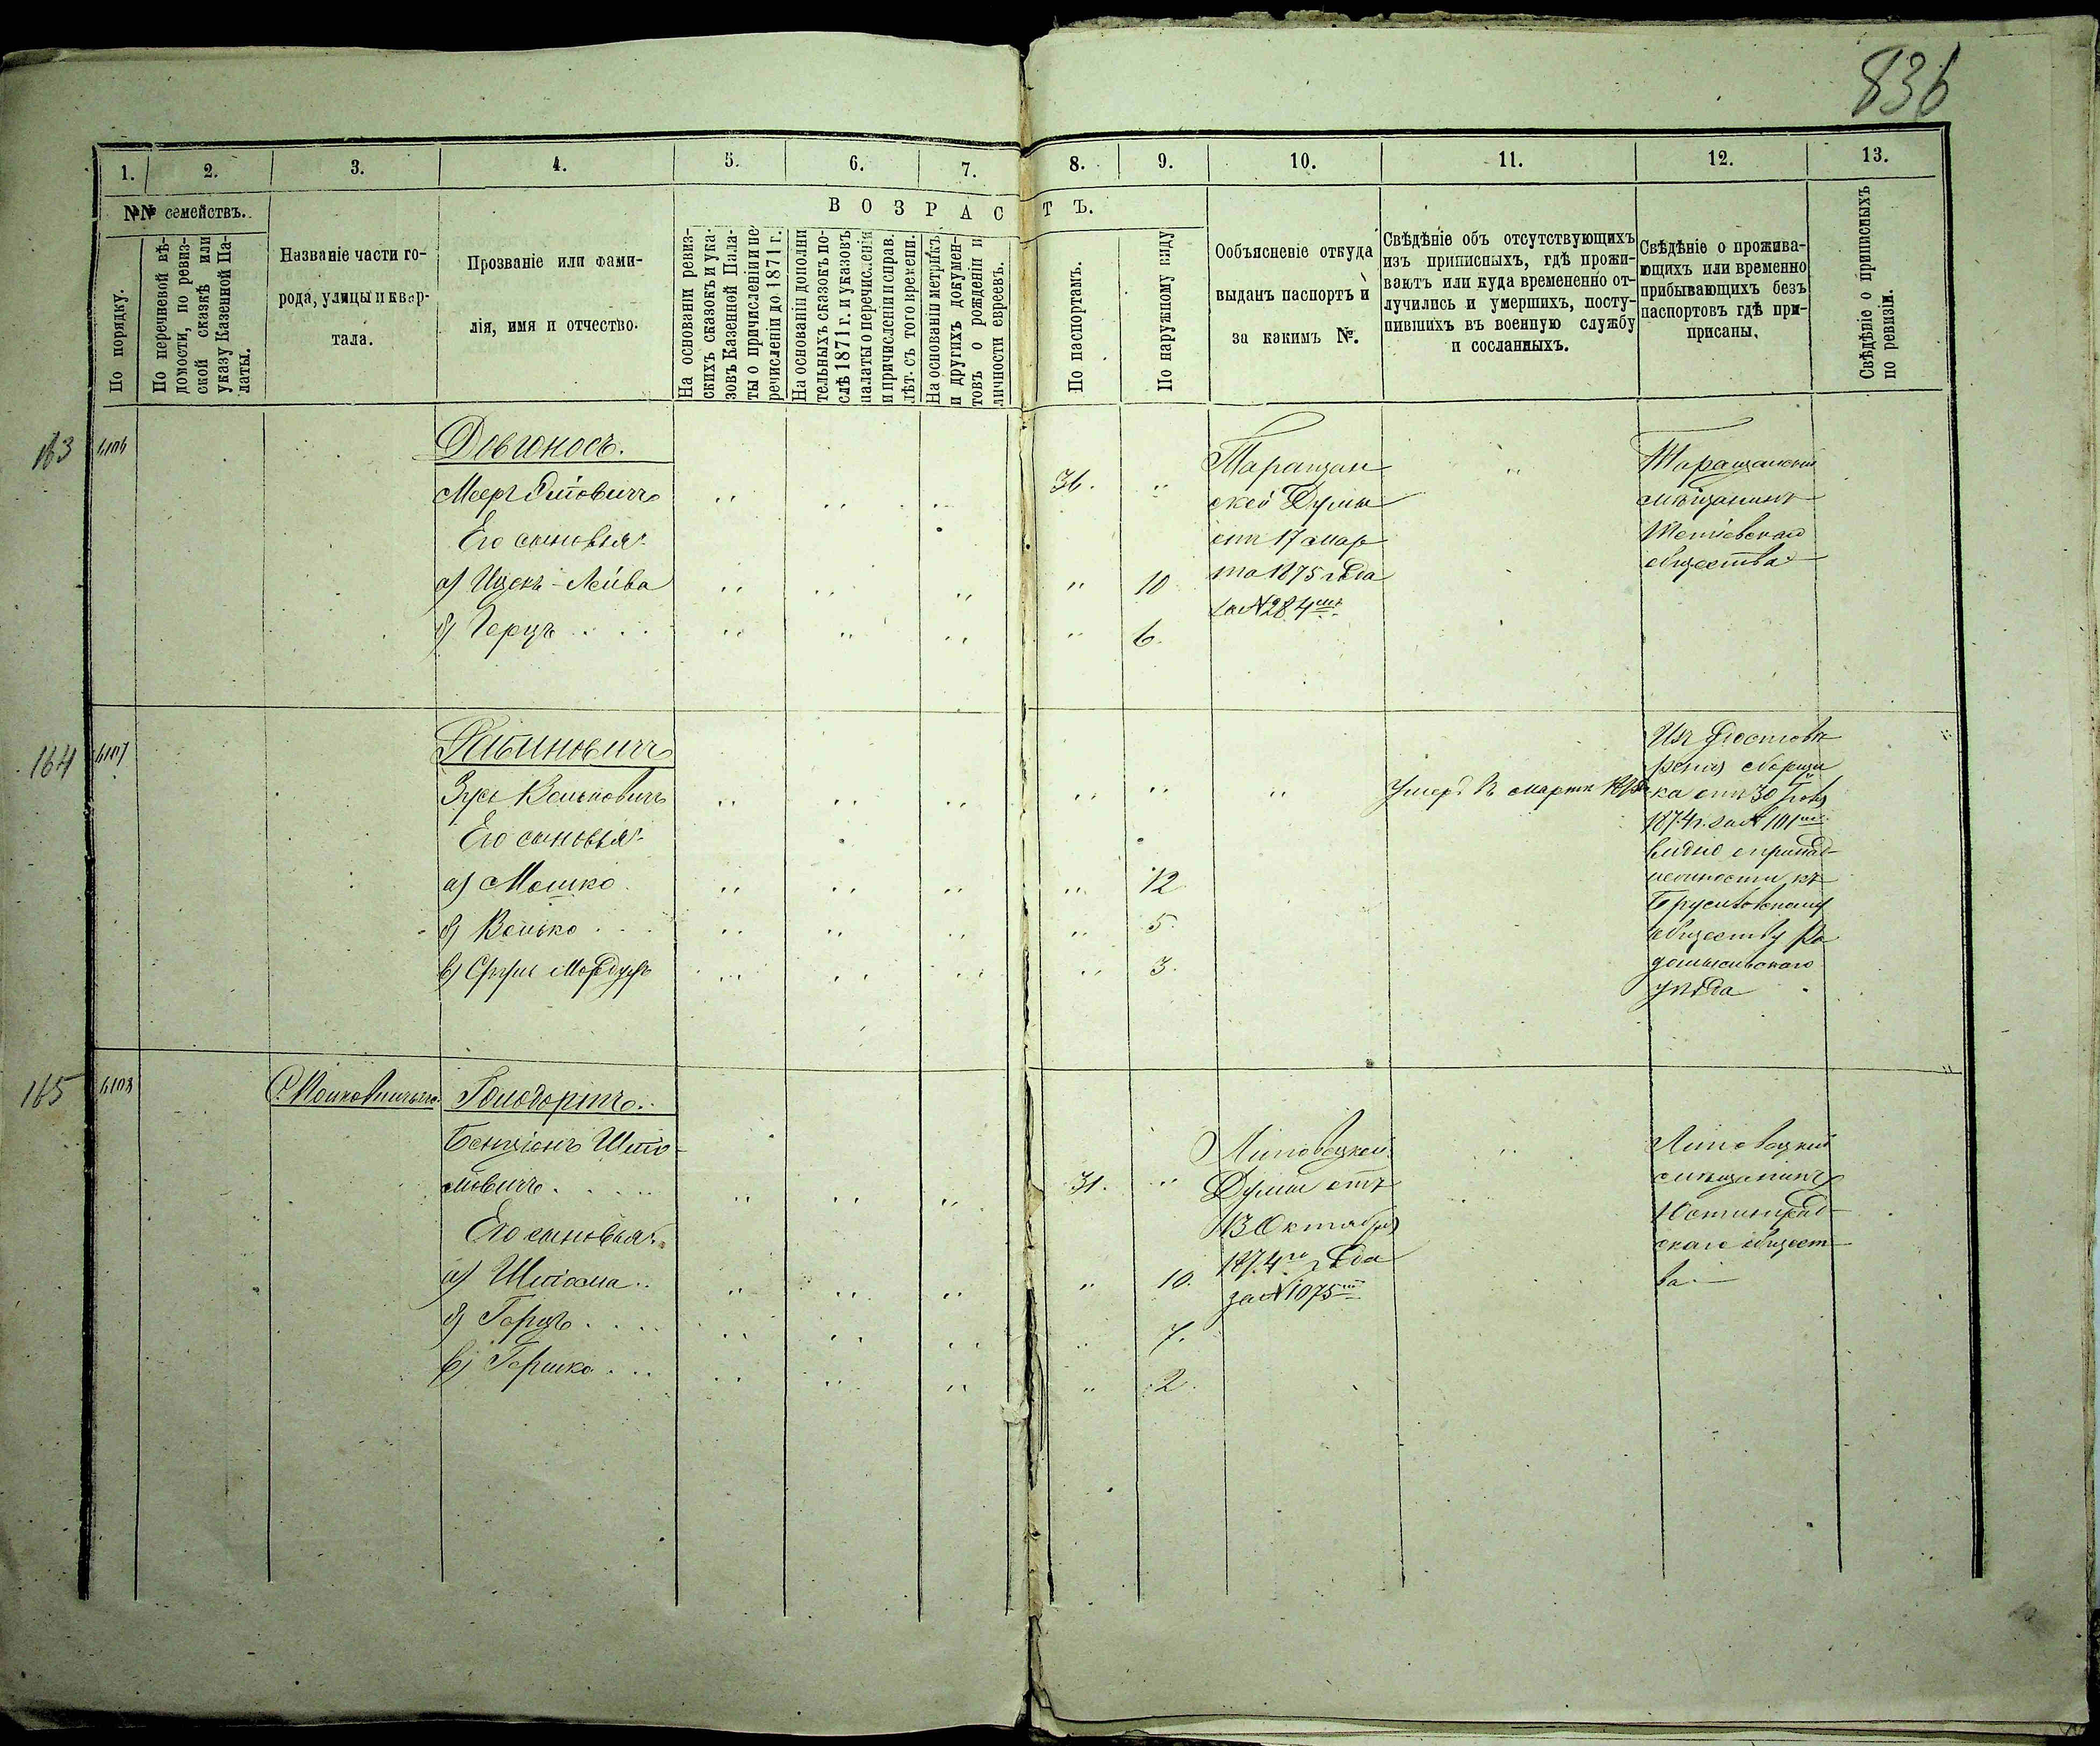 836
1. 2. 3. 4. 5. 6. 7. 8. 9. 10. 11. 12. 13.
№№ семействъ.
ВОЗРАСТЪ.
По порядку.
По перечневой вѣ-
домости, по ревиз-
ской сказкѣ или
указу Казенной Па-
латы.
Названіе части го-
рода, улицы и квар-
тала.
Прозваніе или фами-
лія, имя и отчество.
На основаніи ревиз-
скихъ сказокъ и ука-
зовъ Казенной Пала-
ты о причисленіи и пе-
речисленіи до 1871 г.
На основаніи дополни
тельныхъ сказокъ по-
слѣ 1871 г. и указовъ
палаты о перечисленіи
и причисленіи и справ.
лѣт. съ того времени.
На основаніи метрикъ
и другихъ докумен-
товъ о рожденіи и
личности евреевъ.
По паспортамъ.
По наружному виду
Ообъясненіе откуда
выданъ паспортъ и
за какимъ №.
Свѣдѣніе объ отсутствующихъ
изъ приписныхъ, гдѣ прожи-
ваютъ или куда временно от-
лучились и умершихъ, посту-
пившихъ въ военную службу
и сосланныхъ.
Свѣдѣніе о прожива-
ющихъ или временно
прибывающихъ безъ
паспортовъ гдѣ при-
писаны.
Свѣдѣніе о приписныхъ
по ревизіи.
163
Довгоносъ.
Мееръ
36.
Его сыновья:
а) Ицекъ-Лейба
10
б) Герцъ
6.
Таращан
ской Думы
отъ 17 мар
та 1875 года
за №284
Таращанскій
мѣщанинъ
Тетіевскаго
общества
164
Рабиновичъ
Зусь Вельковичъ
Умеръ въ мартѣ
Его сыновья:
а) Мошко
12
б) Велько
5.
в) Сруль Мордухъ
3.
Изъ удостовѣ
ренія сборщи
ка отъ 30
1874г. за № 101
видно о принад-
лежности къ
Брусиловскому
обществу Ра
домысльскаго
уѣзда
165
Голодорптъ.
Бенціонъ Шліо-
мовичъ
31.
Его сыновья:
а) Шліома
10.
б) Герцъ
7.
в) Гершко
2.
Липовецкой
Думы отъ
13 Октября
1874 года
за №1075
Липовецкій
мѣщанинъ
Юстинград-
скаго общест
ва